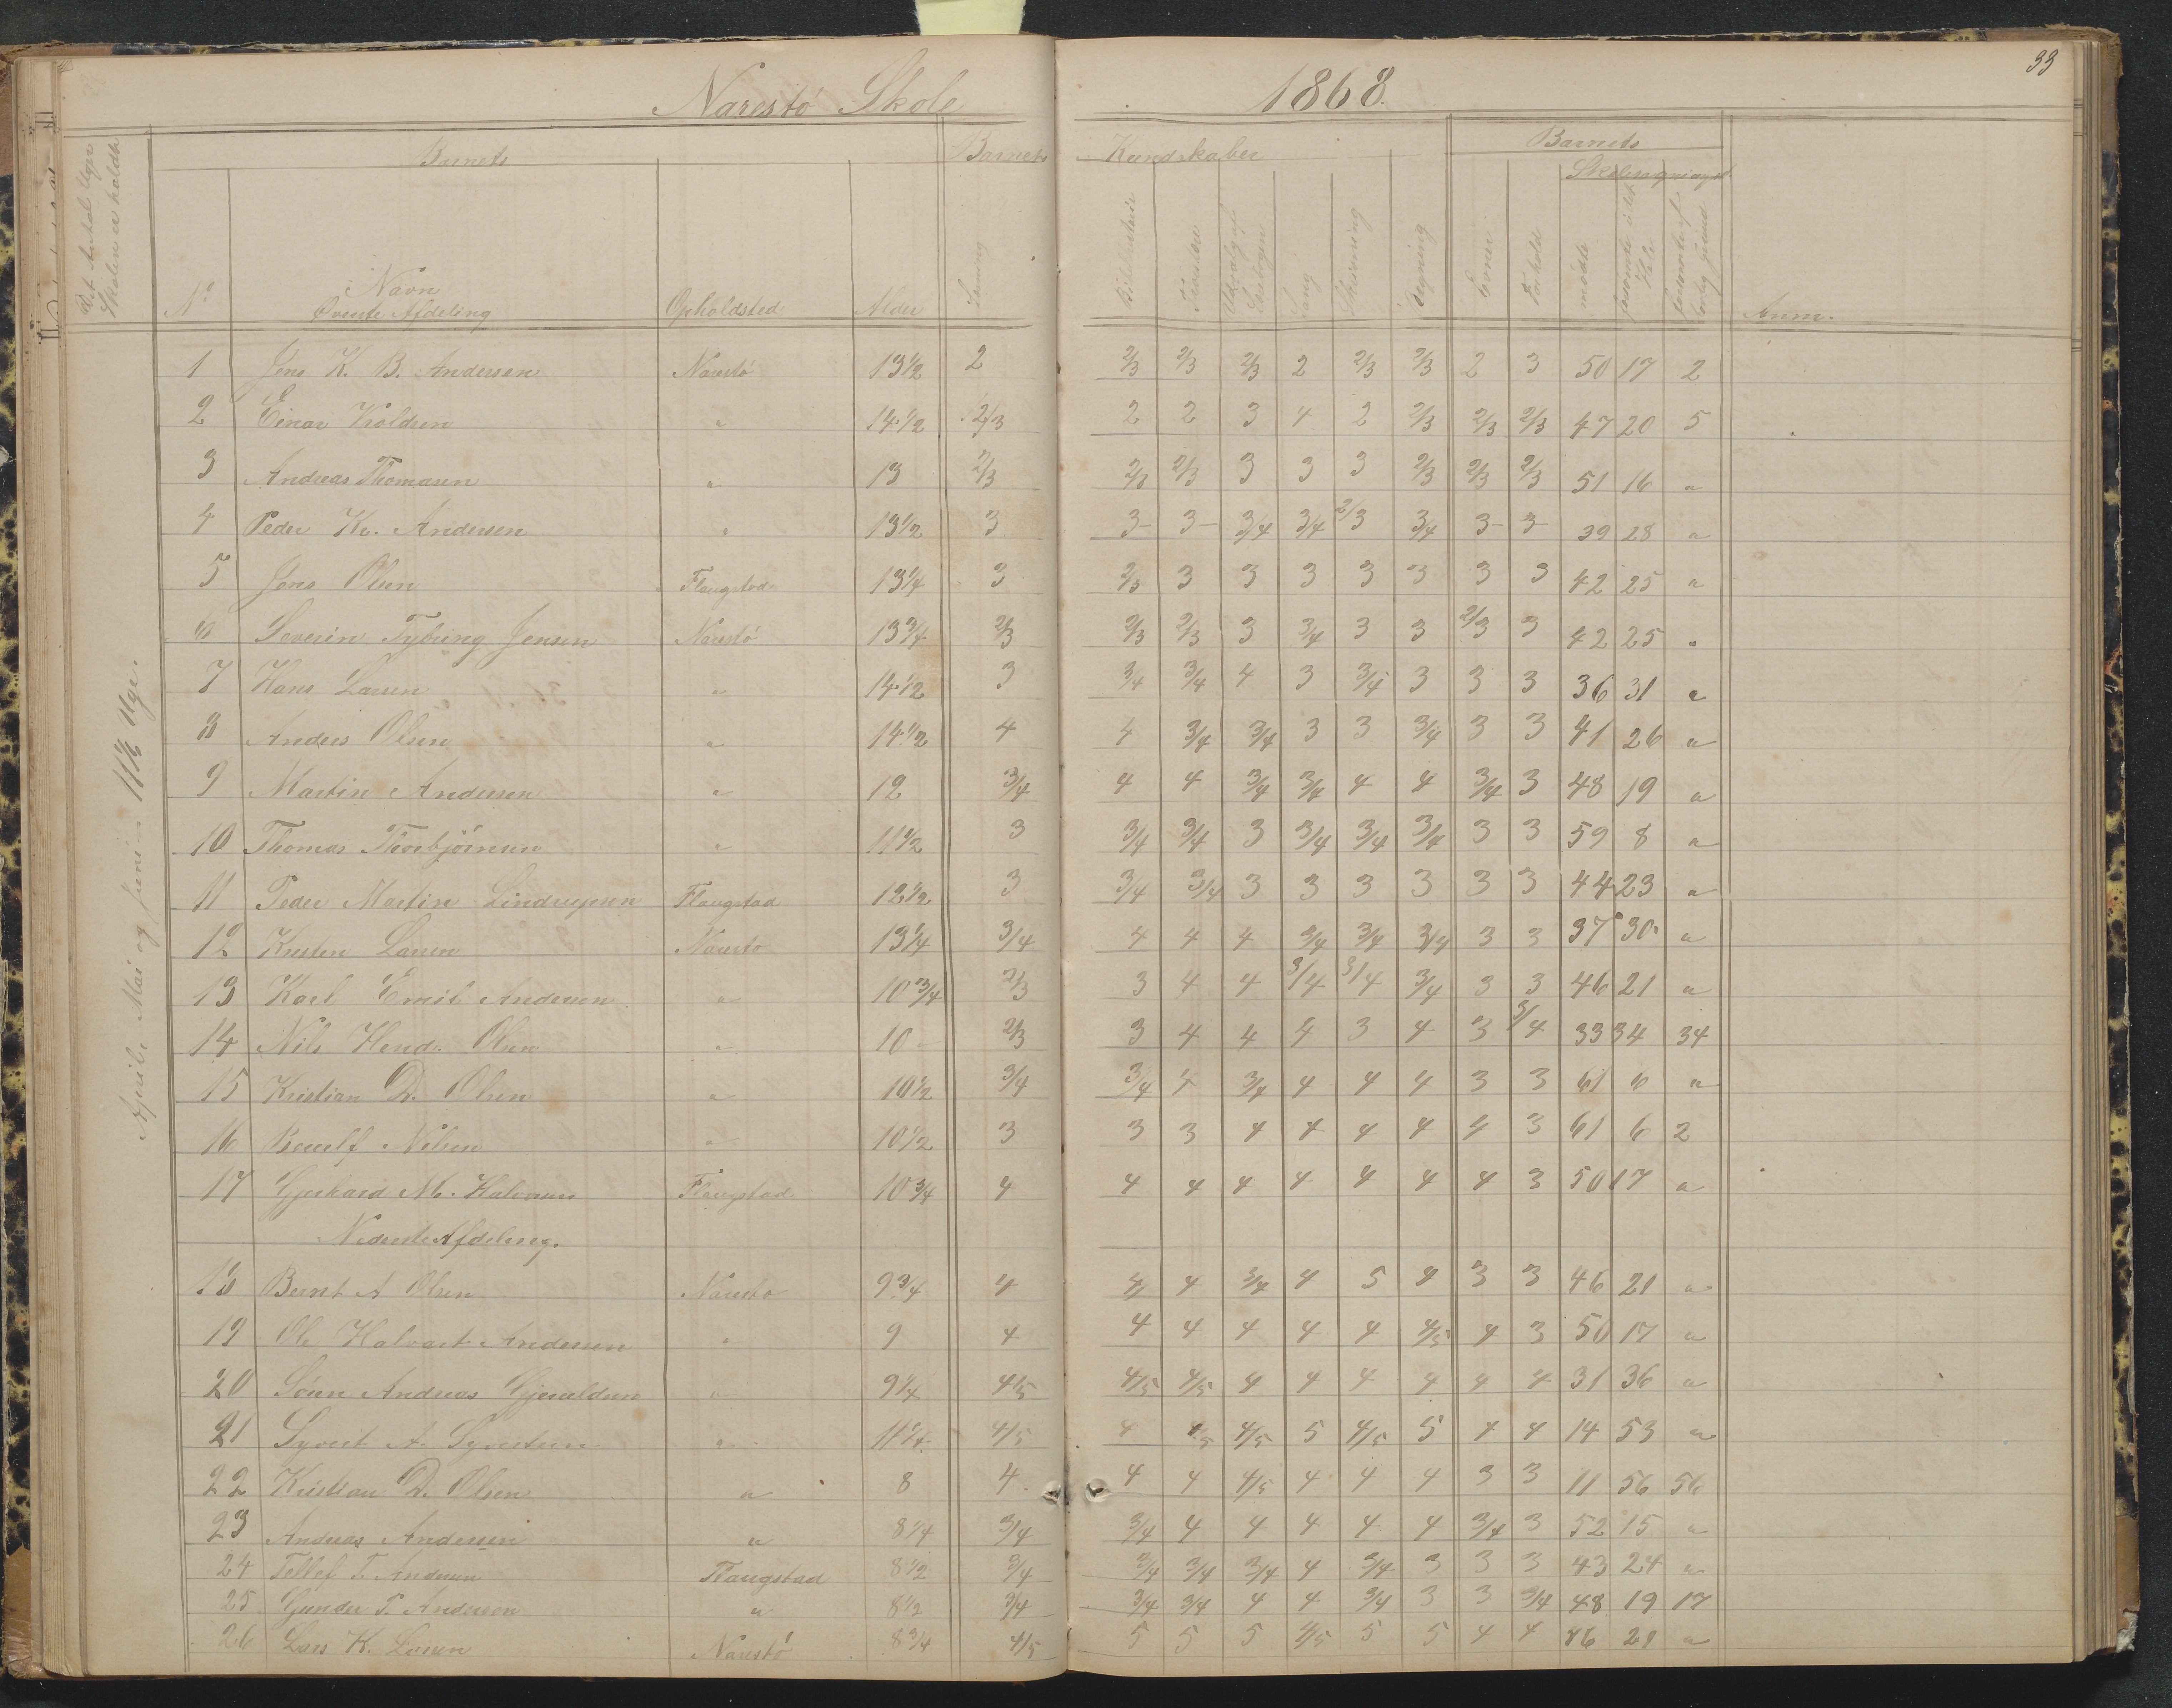 Narestö Skole 1868. 33
Barnets Barnets Kundskaber Barnets
Skolesøgning
Det Antal Uger Skolen er holdt
No Navn Opholdsted Alder Læsning Bibelhistorie Udvalg af Læsebogen Sang Skrivning Regning Evner Forhold mødte forsømte i det Hele forsømte af lovlig Grund Anm.
Øverste Afdeling
April, Mai og Juni = 11 1/6 Uge.
1 Jens K. B. Andersen Narestö 13 1/2 2 2/3 2/3 2/3 2 2/3 2/3 2 3 50 17 2
2 Einar Knoldsen " 14 1/2 2/3 2 2 3 4 2 2/3 2/3 2/3 47 20 5
3 Andreas Thomasen " 13 2/3 2/3 2/3 3 3 3 2/3 2/3 2/3 51 16 "
4 Peder Kr. Andersen " 13 1/2 3 3 3 3/4 3/4 2/3 3/4 3 3 39 28 "
5 Jens Olsen Flangstad 13 1/4 3 2/3 3 3 3 3 3 3 3 42 25 "
6 Severin Tybring Jensen Narestö 13 3/4 2/3 2/3 2/3 3 3/4 3 3 2/3 3 42 25 "
7 Hans Larsen " 14 1/2 3 3/4 3/4 4 3 3/4 3 3 3 36 31 "
8 Anders Olsen " 14 1/2 4 4 3/4 3/4 3 3 3/4 3 3 41 26 "
9 Martin Andersen " 12 3/4 4 4 3/4 3/4 4 4 3/4 3 48 19 "
10 Thomas Thorbjörnsen " 11 1/2 3 3/4 3/4 3 3/4 3/4 3/4 3 3 59 8 "
11 Peder Martin Flangstad 12 1/2 3 3/4 3/4 3 3 3 3 3 3 44 23 "
12 Kristen Larsen Narestö 13 1/4 3/4 4 4 4 3/4 3/4 3/4 3 3 37 30 "
13 Karl Emil Andersen " 10 3/4 2/3 3 4 4 3/4 3/4 3/4 3 3 46 21 "
14 Nils Hend. Olsen " 10 2/3 3 4 4 4 3 4 3 3/4 33 34 34
15 Kristian D. Olsen " 10 1/2 3/4 3/4 4 3/4 4 4 4 3 3 61 6 "
16 Nilsen " 10 1/2 3 3 3 4 4 4 4 4 3 61 6 2
17 Gjerhard M. Halvorsen Flangstad 10 3/4 4 4 4 4 4 4 4 4 3 50 17 "
Nederste Afdeling.
18 Bernt A Olsen Narestö 9 3/4 4 4 4 3/4 4 5 4 3 3 46 21 "
19 Ole Halvart Andersen " 9 4 4 4 4 4 4 4/5 4 3 50 17 "
20 Sören Andreas Gjeruldsen " 9 1/4 4/5 4/5 4/5 4 4 4 4 4 4 31 36 "
21 Syvert A. Syvertsen " 11 1/4 4/5 4 4/5 4/5 5 4/5 5 4 4 14 53 "
22 Kristian D. Olsen " 8 4 4 4 4/5 4 4 4 3 3 11 56 56
23 Andreas Andersen " 8 1/4 3/4 3/4 4 4 4 4 4 3/4 3 52 15 "
24 Tellef T. Andersen Flangstad 8 1/2 3/4 3/4 3/4 3/4 4 3/4 3 3 3 43 24 "
25 Gunder T. Andersen " 8 1/2 3/4 3/4 3/4 4 4 3/4 3 3 3/4 48 19 17
26 Lars K. Larsen Narestö 8 3/4 4/5 5 5 5 4/5 5 5 4 4 46 21 "